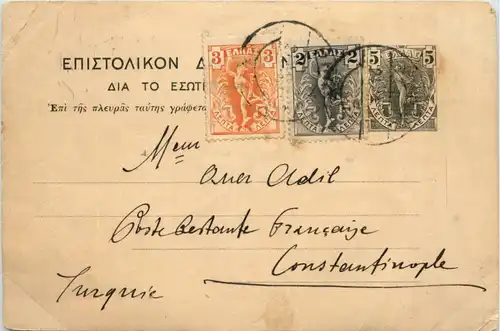 3 ΕΛΛΑΣ 3
2 ΕΛΛΑΣ 2
5 5
ΕΠΙΣΤΟΛΙΚΟΝ Δ
ΔΙΑ ΤΟ ΕΣΩΤ
Ἐπὶ τῆς πλευρᾶς ταύτης γράφετα
ΛΕΠΤΑ ΛΕΠΤΑ
ΛΕΠΤΑ ΛΕΠΤΑ
Omer Adil
Poste Restante Française
Constantinople
Turquie